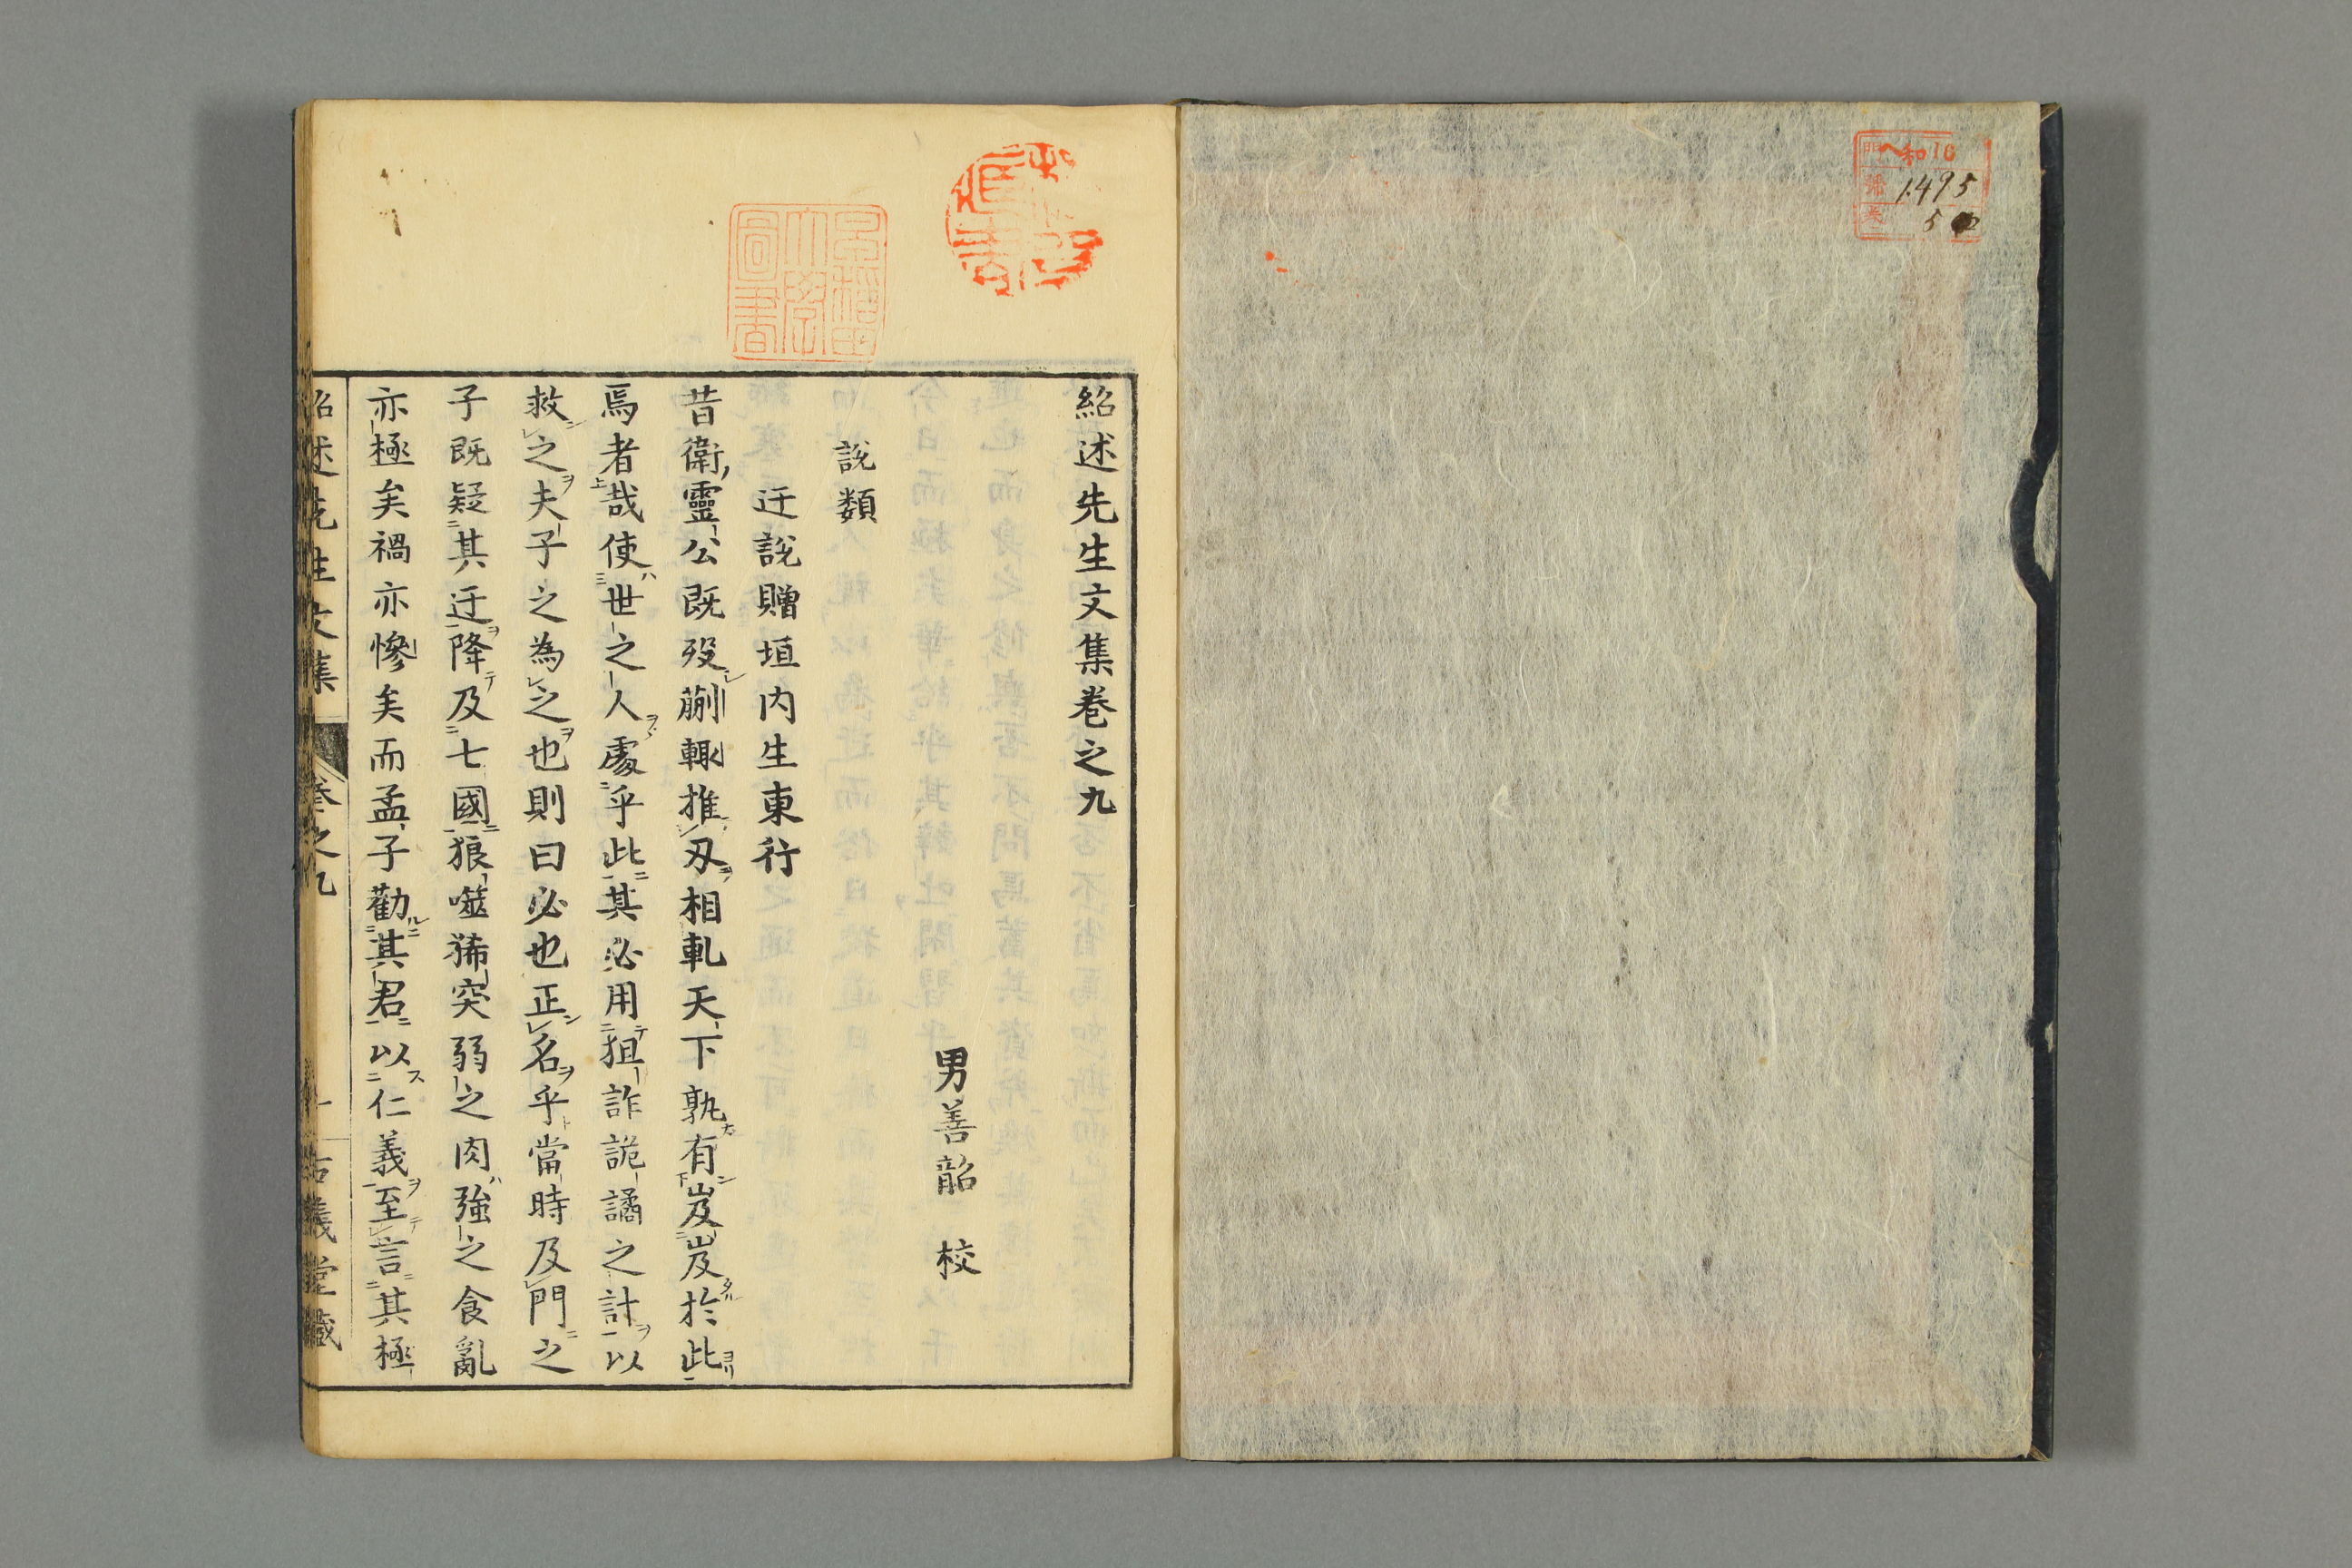 門 ヘ和10
號 1495
巻 5
早稲田大學圖書
紹述先生文集巻之九
男善韶　校
說類
迂說贈垣内生東行
昔衛靈公既歿蒯輒推刃相軋天下孰有岌岌於此
焉者哉使世之人處乎此其必用狙詐詭譎之計以
救之夫子之為之也則曰必也正名乎當時及門之
子既疑其迂降及七國狼噬狶突弱之肉強之食亂
亦極矣禍亦慘矣而孟子勸其君以仁義至言其極
紹述先生文集　巻之九　一　古義堂藏